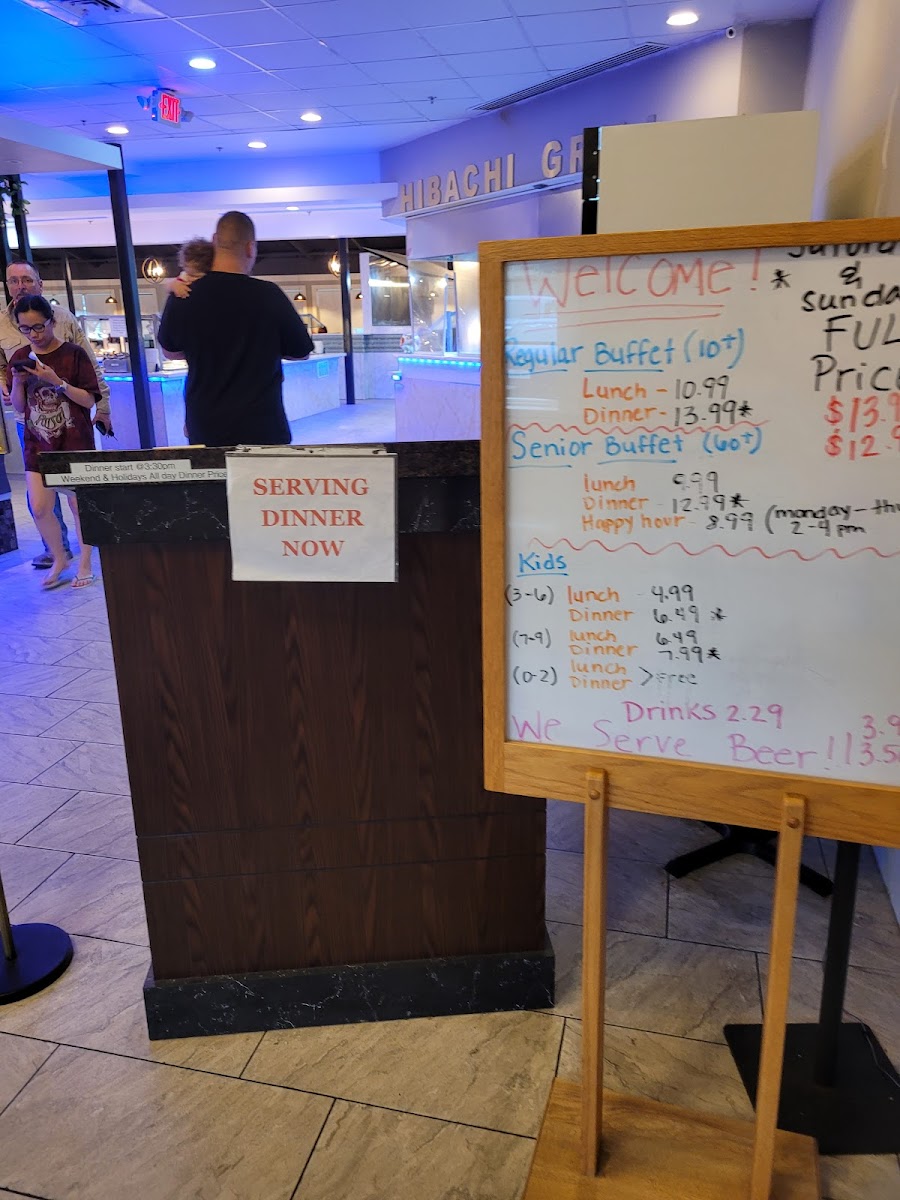 EXIT
HIBACHI GR
Welcome!
Regular Buffet (10+)
Lunch - 10.99
Dinner - 13.99*
Senior Buffet (60+)
lunch 9.99
Dinner - 12.99*
Happy hour - 8.99 (monday - thu
2-4 pm
Kids
(3-6) lunch - 4.99
Dinner 6.49 *
(7-9) lunch 6.49
Dinner 7.99*
(0-2) lunch
Dinner > Free
Drinks 2.29
We Serve Beer!!
3.9
3.50
* Saturda
&
Sunda
FUL
Price
$13.9
$12.9
Dinner start @3:30pm
Weekend & Holidays All day Dinner Price
SERVING
DINNER
NOW